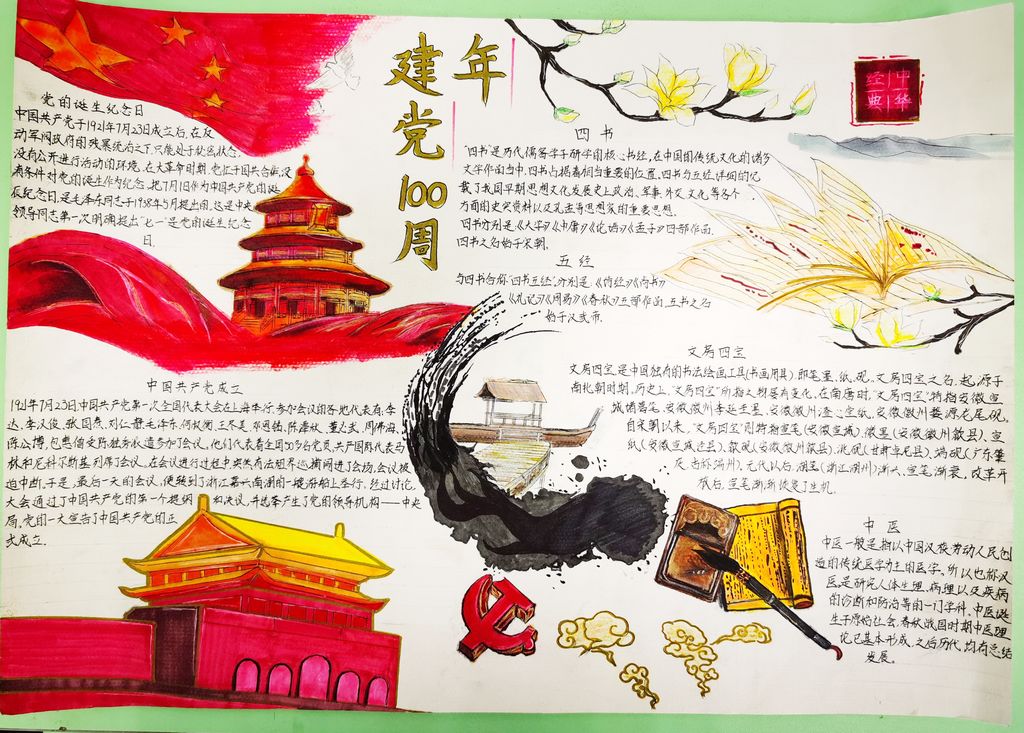 建党100周
年
中华
经典
党的诞生纪念日
中国共产党于1921年7月23日成立后,在反
动军阀政府的残暴统治之下,只能处于秘密状态,
没有公开进行活动的环境,在大革命时期,党忙于国共合作没
有条件对党的诞生作为纪念,把7月1日作为中国共产党的诞
辰纪念日,是毛泽东同志于1938年5月提出的,这是中央
领导同志第一次明确提出"七一"是党的诞生纪念
日.
四书
"四书"是历代儒客学子研学的核心书经,在中国的传统文化的诸多
文学作品当中,四书占据着相当重要的位置.四书与五经详细的记
载了我国早期思想文化发展史上政治、军事、外交、文化等各个
方面的史实资料以及孔孟等思想家的重要思想.
四书分别是《大学》《中庸》《论语》《孟子》四部作品,
四书之名始于宋朝.
五经
与四书合称"四书五经",分别是《诗经》《尚书》
《礼记》《周易》《春秋》五部作品,五书之名
始于汉武帝.
中国共产党成立
1921年7月23日,中国共产党第一次全国代表大会在上海举行,参加会议的各地代表有:李
达、李人俊、张国焘、刘仁静、毛泽东、何叔衡、王尽美、邓恩铭、陈潭秋、董必武、周佛海、
陈公博,包惠僧受陈独秀派遣参加了会议,他们代表着全国50多名党员,共产国际代表马
林和尼科尔斯基列席了会议.在会议进行过程中突然有法租界巡捕闯进了会场,会议被
迫中断,于是,最后一天的会议,便转到了浙江嘉兴南湖的一艘游船上举行,经过讨论,
大会通过了中国共产党的第一个提纲和决议,并选举产生了党的领导机构——中央
局,党的一大宣告了中国共产党的正
式成立.
文房四宝
文房四宝,是中国独有的书法绘画工具(书画用具),即笔、墨、纸、砚.文房四宝之名,起源于
南北朝时期,历史上,"文房四宝"所指之物屡有变化,在南唐时,"文房四宝"特指安徽宣
城诸葛笔、安徽徽州李廷圭墨、安徽徽州澄心堂纸,安徽徽州婺源龙尾砚.
自宋朝以来,"文房四宝"则特指宣笔(安徽宣城)、徽墨(安徽徽州歙县)、宣
纸(安徽宣城泾县)、歙砚(安徽徽州歙县)、洮砚(甘肃卓尼县)、端砚(广东肇
庆,古称端州),元代以后,湖笔(浙江湖州)渐兴,宣笔渐衰,改革开
放后,宣笔渐渐恢复了生机.
中医
中医一般是指以中国汉族劳动人民创
造的传统医学为主的医学,所以也称汉
医,是研究人体生理、病理以及疾病
的诊断和防治等的一门学科.中医诞
生于原始社会,春秋战国时期中医理
论已基本形成,之后历代,均有总结
发展.